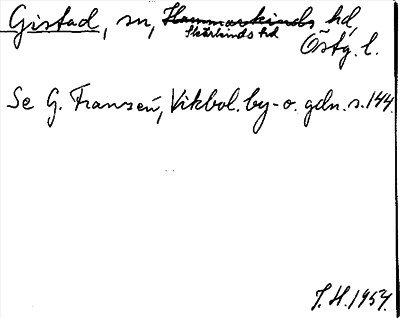 Gistad, sn, Hammarkinds hd,
Skärkinds hd
Östg. l.
Se G. Franzén, Vikbol. by- o. gdn. s. 144.
J. H. 1954.